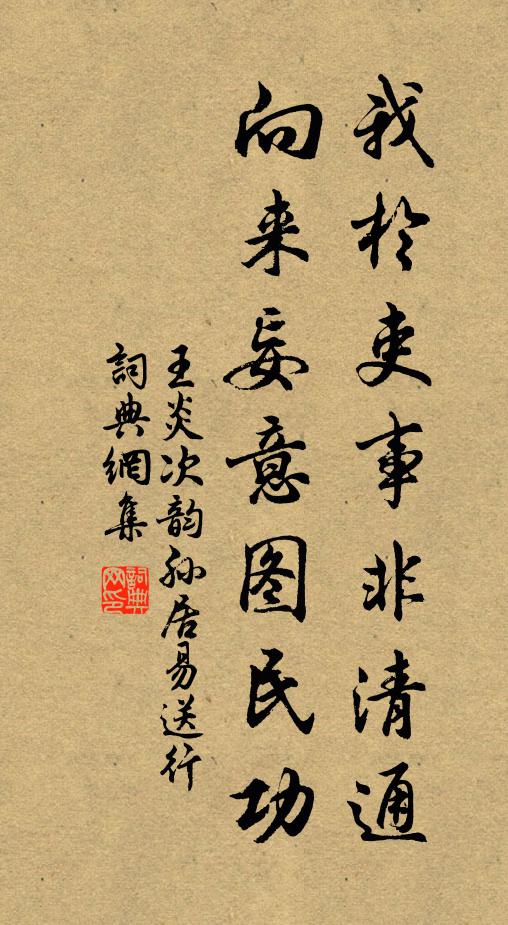 我於吏事非清通
向来妄意图民功
王炎次韵孙居易送行
詞典網集
詞典网印